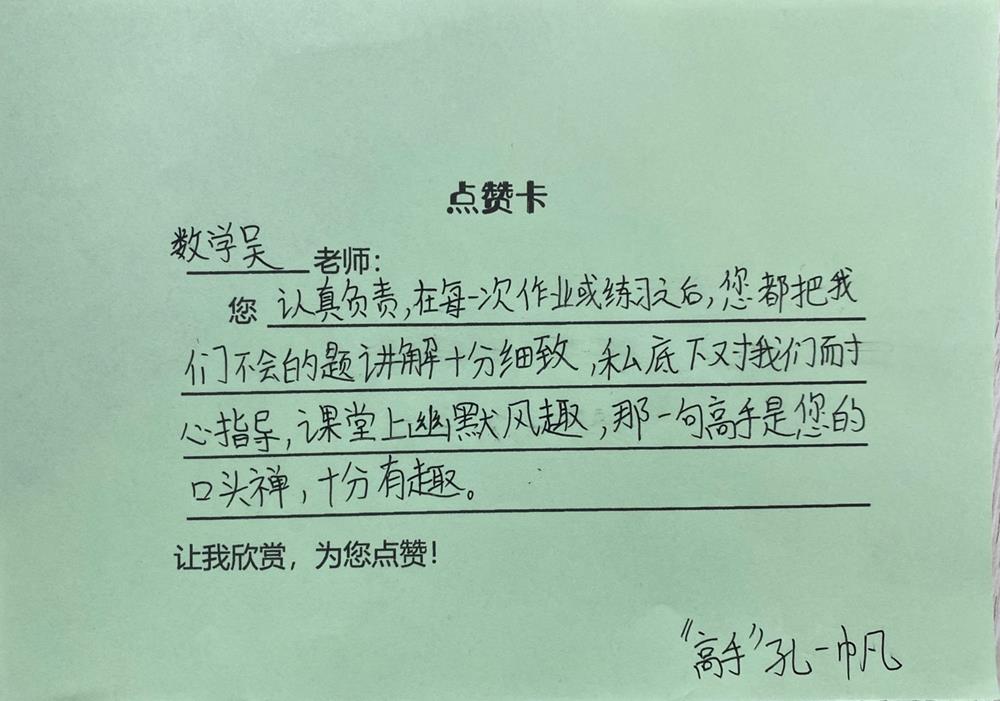 点赞卡
数学吴老师：
您认真负责，在每一次作业或练习之后，您都把我
们不会的题讲解十分细致，私底下又对我们耐
心指导，课堂上幽默风趣，那一句高手是您的
口头禅，十分有趣。
让我欣赏，为您点赞！
“高手”孔一帆